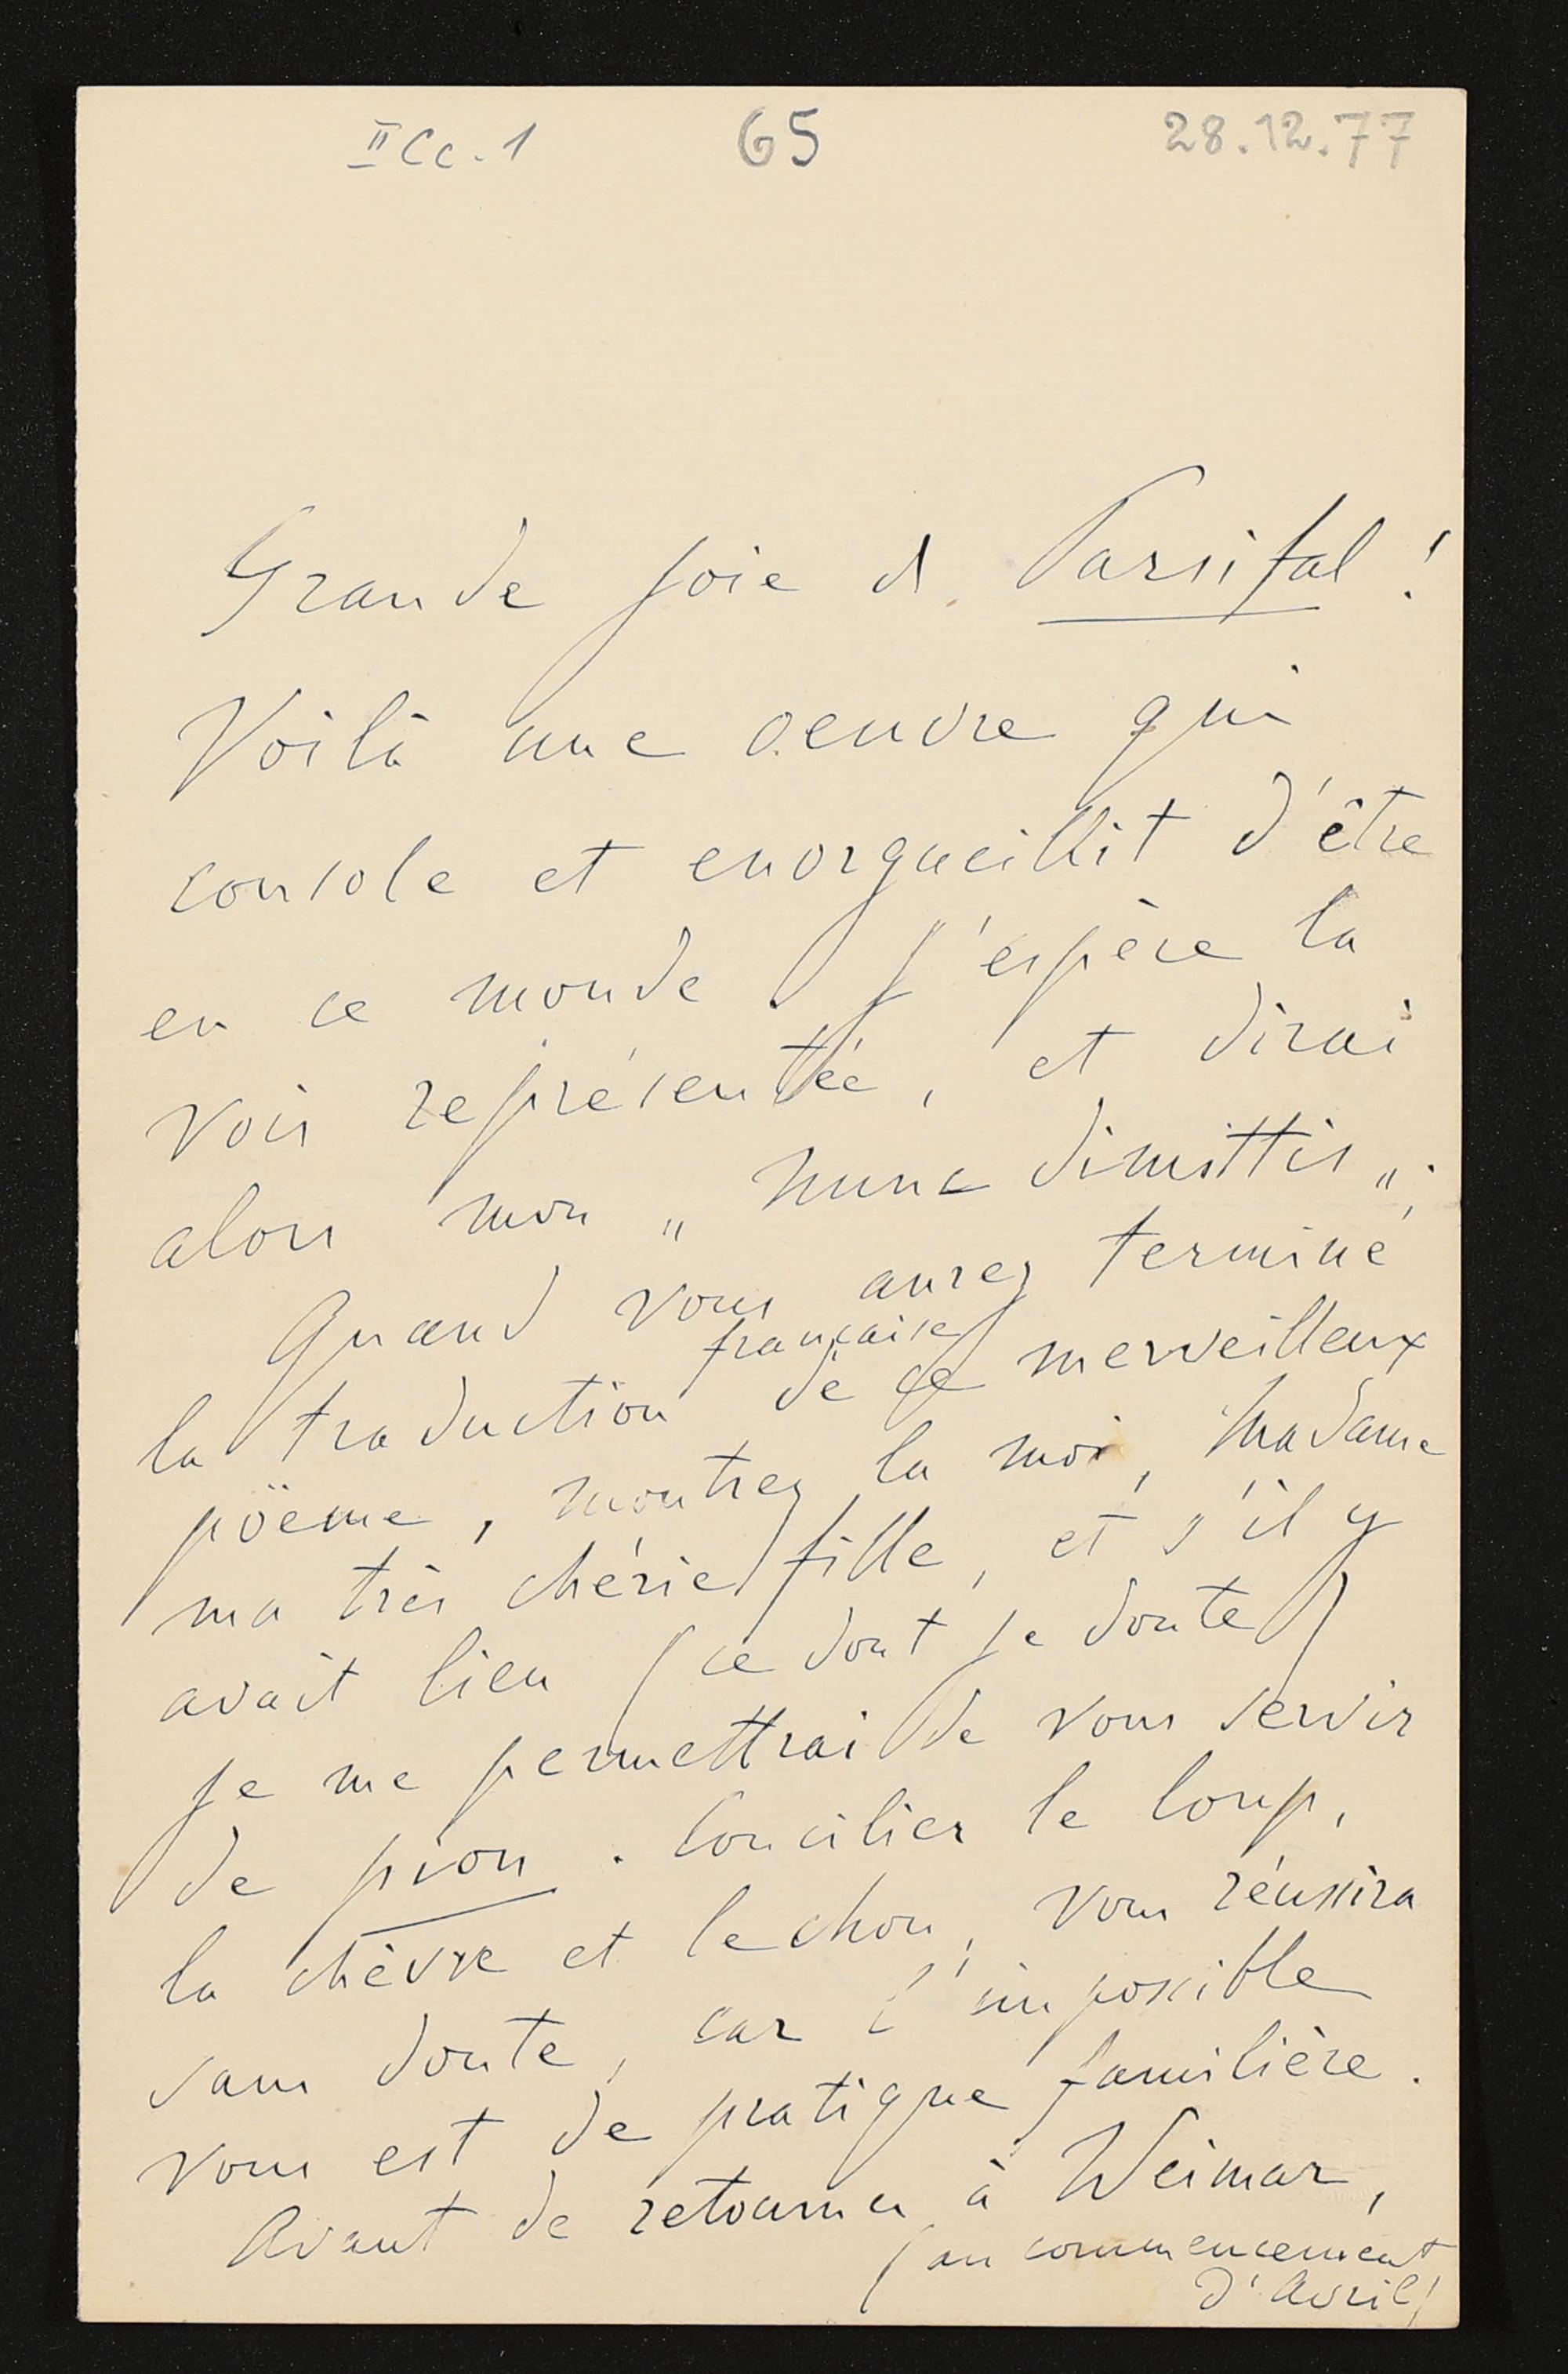 II Cc. 1 65 28.12.77
Grande joie d Parsifal!
Voilà une oeuvre qui
console et enorgueillit d'être
en ce monde. J'espère la
voir representée, et dirai
alors mon „ nunc dimittis „.
Quand vous aurez terminé
la traduction française de ce merveilleux
pöeme, montrez la moi, Madame
ma très chérie fille, et s'il y
avait lieu (ce dont je doute)
je me permettrai de vous servir
de pion. Concilier le loup,
la chèvre et le chou, vous réussira
sans doute, car l'impossible
vous est de pratique familière.
Avant de retourner à Weimar,
(au commencement
d'Avril)